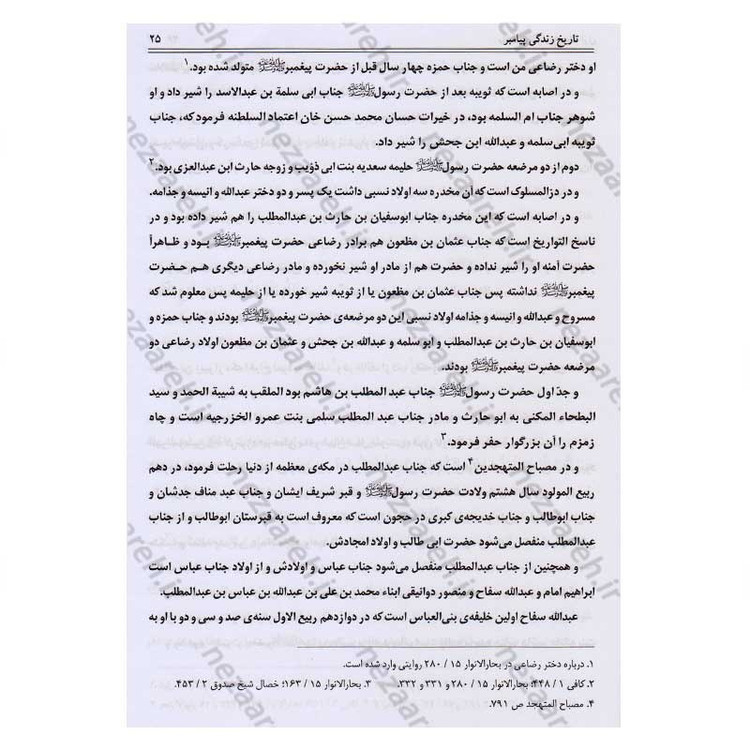 تاریخ زندگی پیامبر ۲۵
او دختر رضاعی من است و جناب حمزه چهار سال قبل از حضرت پیغمبرﷺ متولد شده بود.۱
و در اصابه است که ثویبه بعد از حضرت رسولﷺ جناب ابی سلمة بن عبدالاسد را شیر داد و او
شوهر جناب ام السلمه بود، در خیرات حسان محمد حسن خان اعتماد السلطنه فرمود که، جناب
ثویبه ابی‌سلمه و عبدالله ابن جحش را شیر داد.
دوم از دو مرضعه حضرت رسولﷺ حلیمه سعدیه بنت ابی ذؤیب و زوجه حارث ابن عبدالعزی بود.۲
و در درالمسلوک است که آن مخدره سه اولاد نسبی داشت یک پسر و دو دختر عبدالله و انیسه و جذامه.
و در اصابه است که این مخدره جناب ابوسفیان بن حارث بن عبدالمطلب را هم شیر داده بود و در
ناسخ التواریخ است که جناب عثمان بن مظعون هم برادر رضاعی حضرت پیغمبرﷺ بود و ظاهراً
حضرت آمنه او را شیر نداده و حضرت هم از مادر او شیر نخورده و مادر رضاعی دیگری هم حضرت
پیغمبرﷺ نداشته پس جناب عثمان بن مظعون یا از ثویبه شیر خورده یا از حلیمه پس معلوم شد که
مسروح و عبدالله و انیسه و جذامه اولاد نسبی این دو مرضعه‌ی حضرت پیغمبرﷺ بودند و جناب حمزه و
ابوسفیان بن حارث بن عبدالمطلب و ابو سلمه و عبدالله بن جحش و عثمان بن مظعون اولاد رضاعی دو
مرضعه حضرت پیغمبرﷺ بودند.
و جدّ اول حضرت رسولﷺ جناب عبد المطلب بن هاشم بود الملقب به شیبة الحمد و سید
البطحاء المکنی به ابو حارث و مادر جناب عبد المطلب سلمی بنت عمرو الخزرجیه است و چاه
زمزم را آن بزرگوار حفر فرمود.۳
و در مصباح المتهجدین۴ است که جناب عبدالمطلب در مکه‌ی معظمه از دنیا رحلت فرمود، در دهم
ربیع المولود سال هشتم ولادت حضرت رسولﷺ و قبر شریف ایشان و جناب عبد مناف جدشان و
جناب ابوطالب و جناب خدیجه‌ی کبری در حجون است که معروف است به قبرستان ابوطالب و از جناب
عبدالمطلب منفصل می‌شود حضرت ابی طالب و اولاد امجادش.
و همچنین از جناب عبدالمطلب منفصل می‌شود جناب عباس و اولادش و از اولاد جناب عباس است
ابراهیم امام و عبدالله سفاح و منصور دوانیقی ابناء محمد بن علی بن عبدالله بن عباس بن عبدالمطلب.
عبدالله سفاح اولین خلیفه‌ی بنی‌العباس است که در دوازدهم ربیع الاول سنه‌ی صد و سی و دو با او به
۱. درباره دختر رضاعی در بحارالانوار ۱۵ / ۲۸۰ روایتی وارد شده است.
۲. کافی ۱ / ۴۴۸؛ بحارالانوار ۱۵ / ۲۸۰ و ۳۳۱ و ۳۳۲. ۳. بحارالانوار ۱۵ / ۱۶۳؛ خصال شیخ صدوق ۲ / ۴۵۳.
۴. مصباح المتهجد ص ۷۹۱.
nezaareh.ir